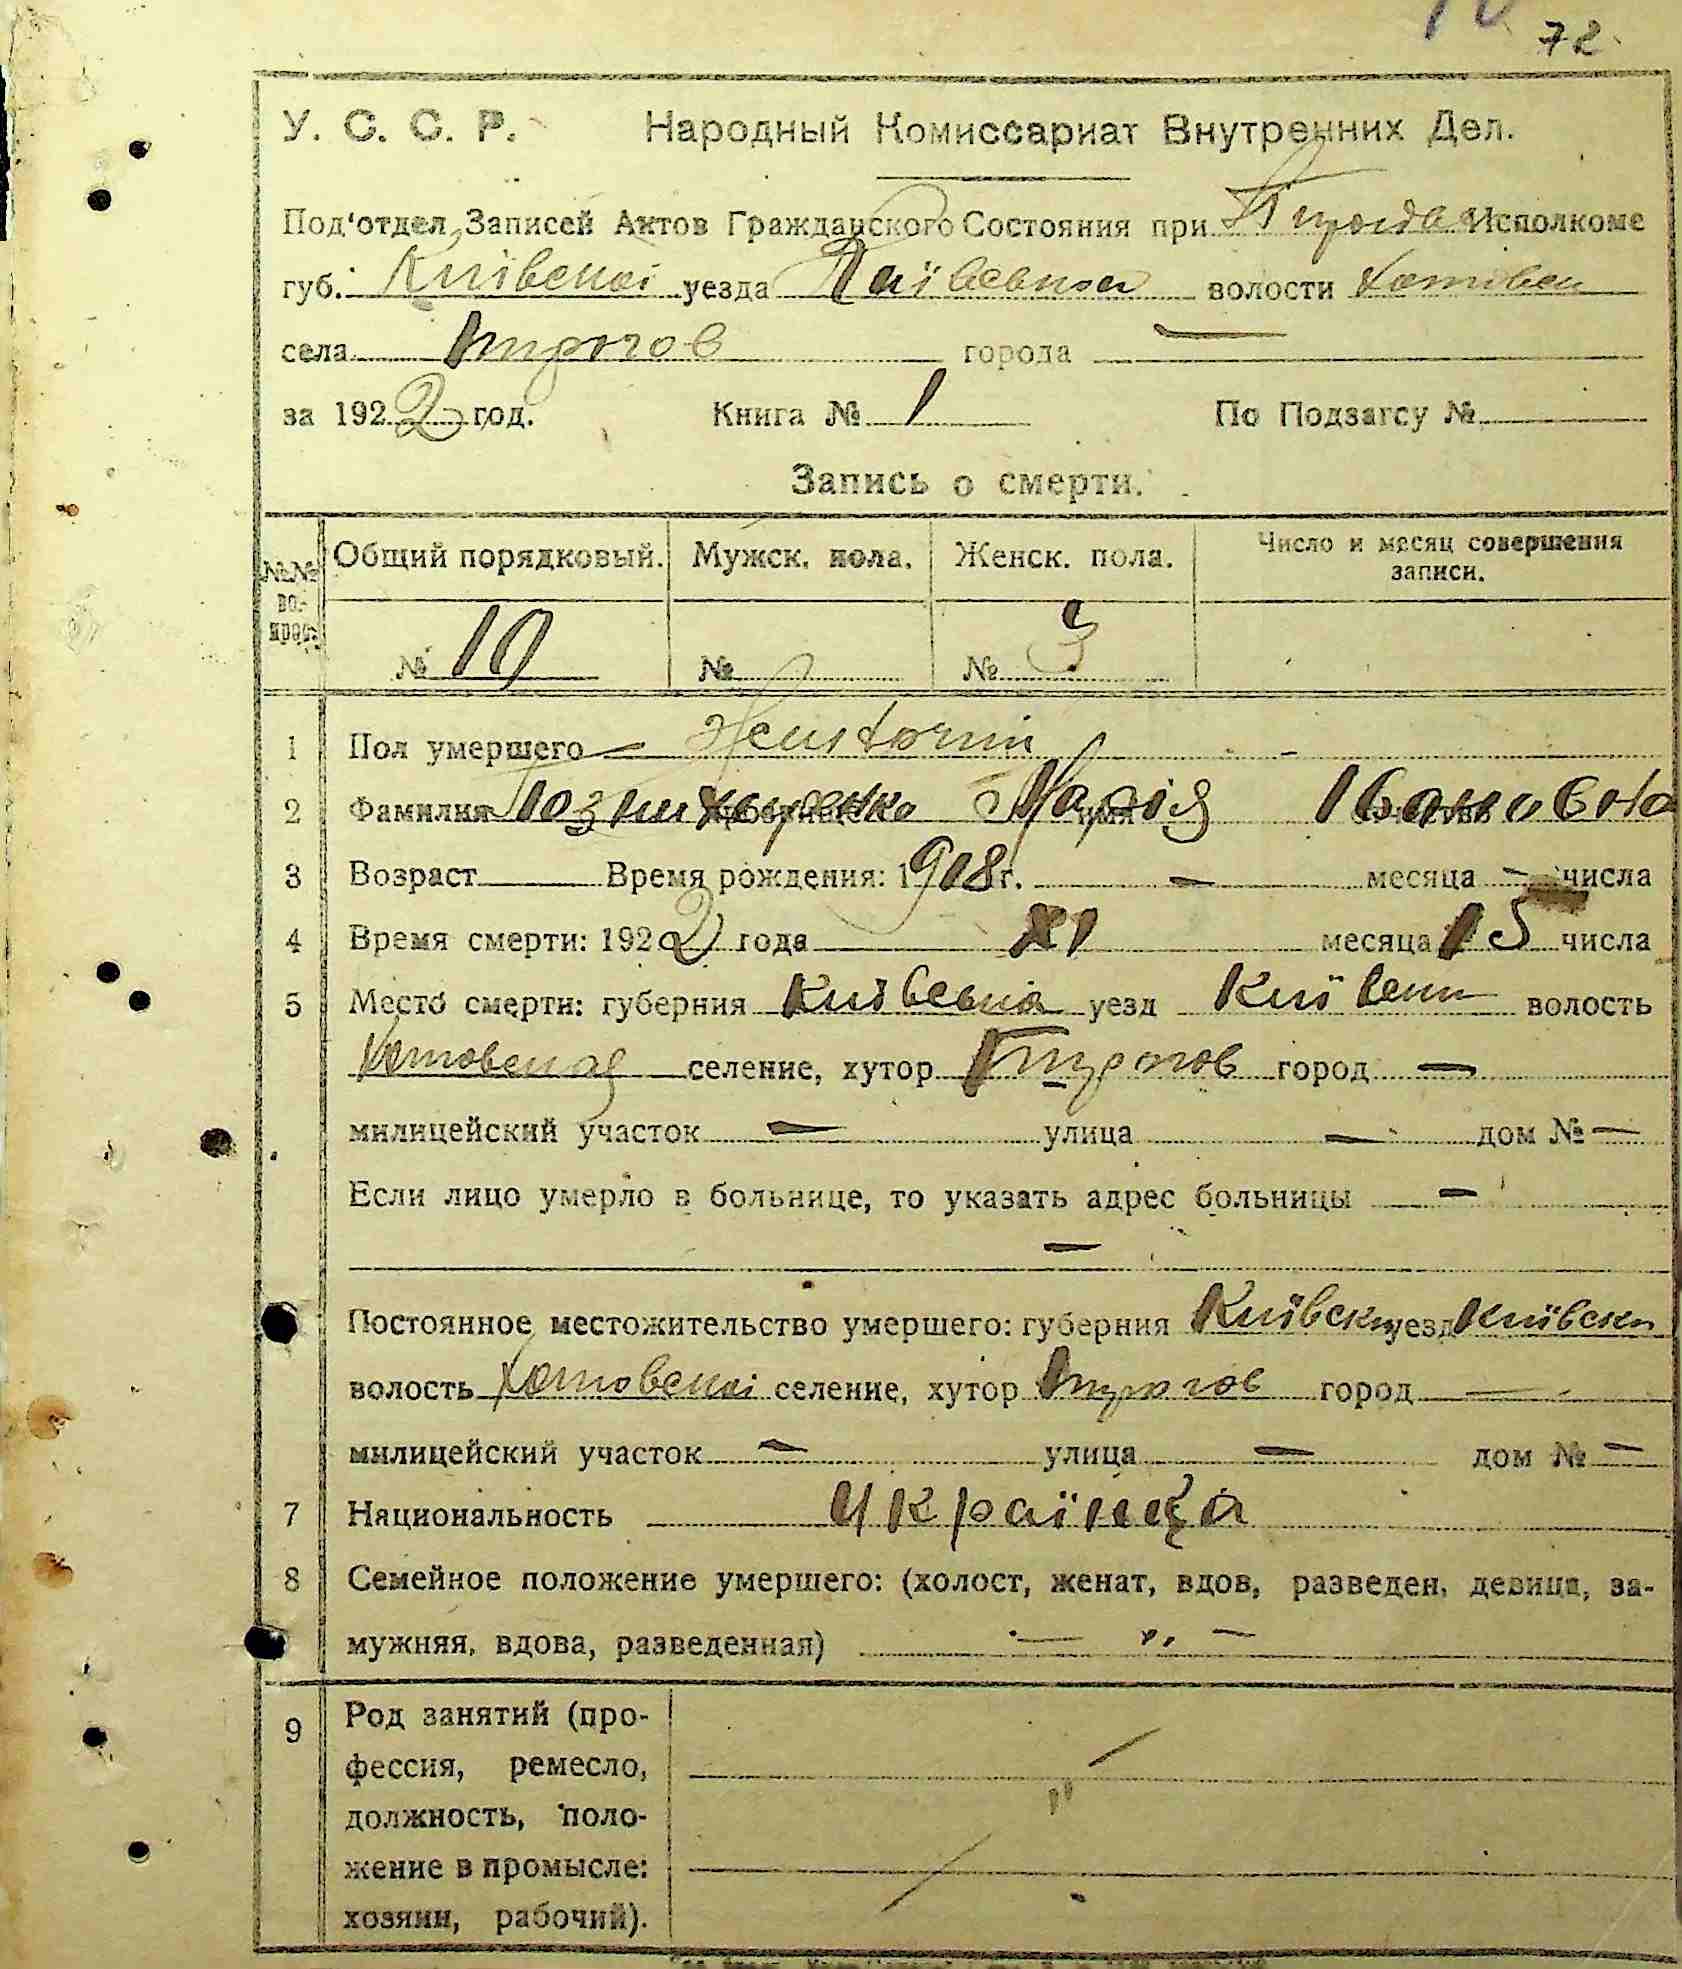 72
У. С. С. Р. Народный Комиссариат Внутренних Дел.
Под'отдел Записей Актов Гражданского Состояния при Исполкоме
губ. Київської уезда Київська волости Хотівсь
села Пирогов города —
за 1922 год. Книга № 1 По Подзагсу №
Запись о смерти.
№№ вопрос. Общий порядковый. Мужск. пола. Женск. пола. Число и месяц совершения записи.
№ 10 № № 3
1 Пол умершего — 
2 Фамилия Марія Івановна
3 Возраст Время рождения: 1908 г. — месяца — числа
4 Время смерти: 1922 года XI месяца 15 числа
5 Место смерти: губерния Київська уезд Київськ волость
Хотовская селение, хутор Пирогов город —
милицейский участок — улица — дом № —
Если лицо умерло в больнице, то указать адрес больницы —
—
Постоянное местожительство умершего: губерния Київськ уезд Київськ
волость Хотовської селение, хутор Пирогов город —
милицейский участок — улица — дом № —
7 Национальность Українка
8 Семейное положение умершего: (холост, женат, вдов, разведен, девица, за-
мужняя, вдова, разведенная) — „ —
9 Род занятий (про-
фессия, ремесло,
должность, поло-
жение в промысле:
хозяин, рабочий).